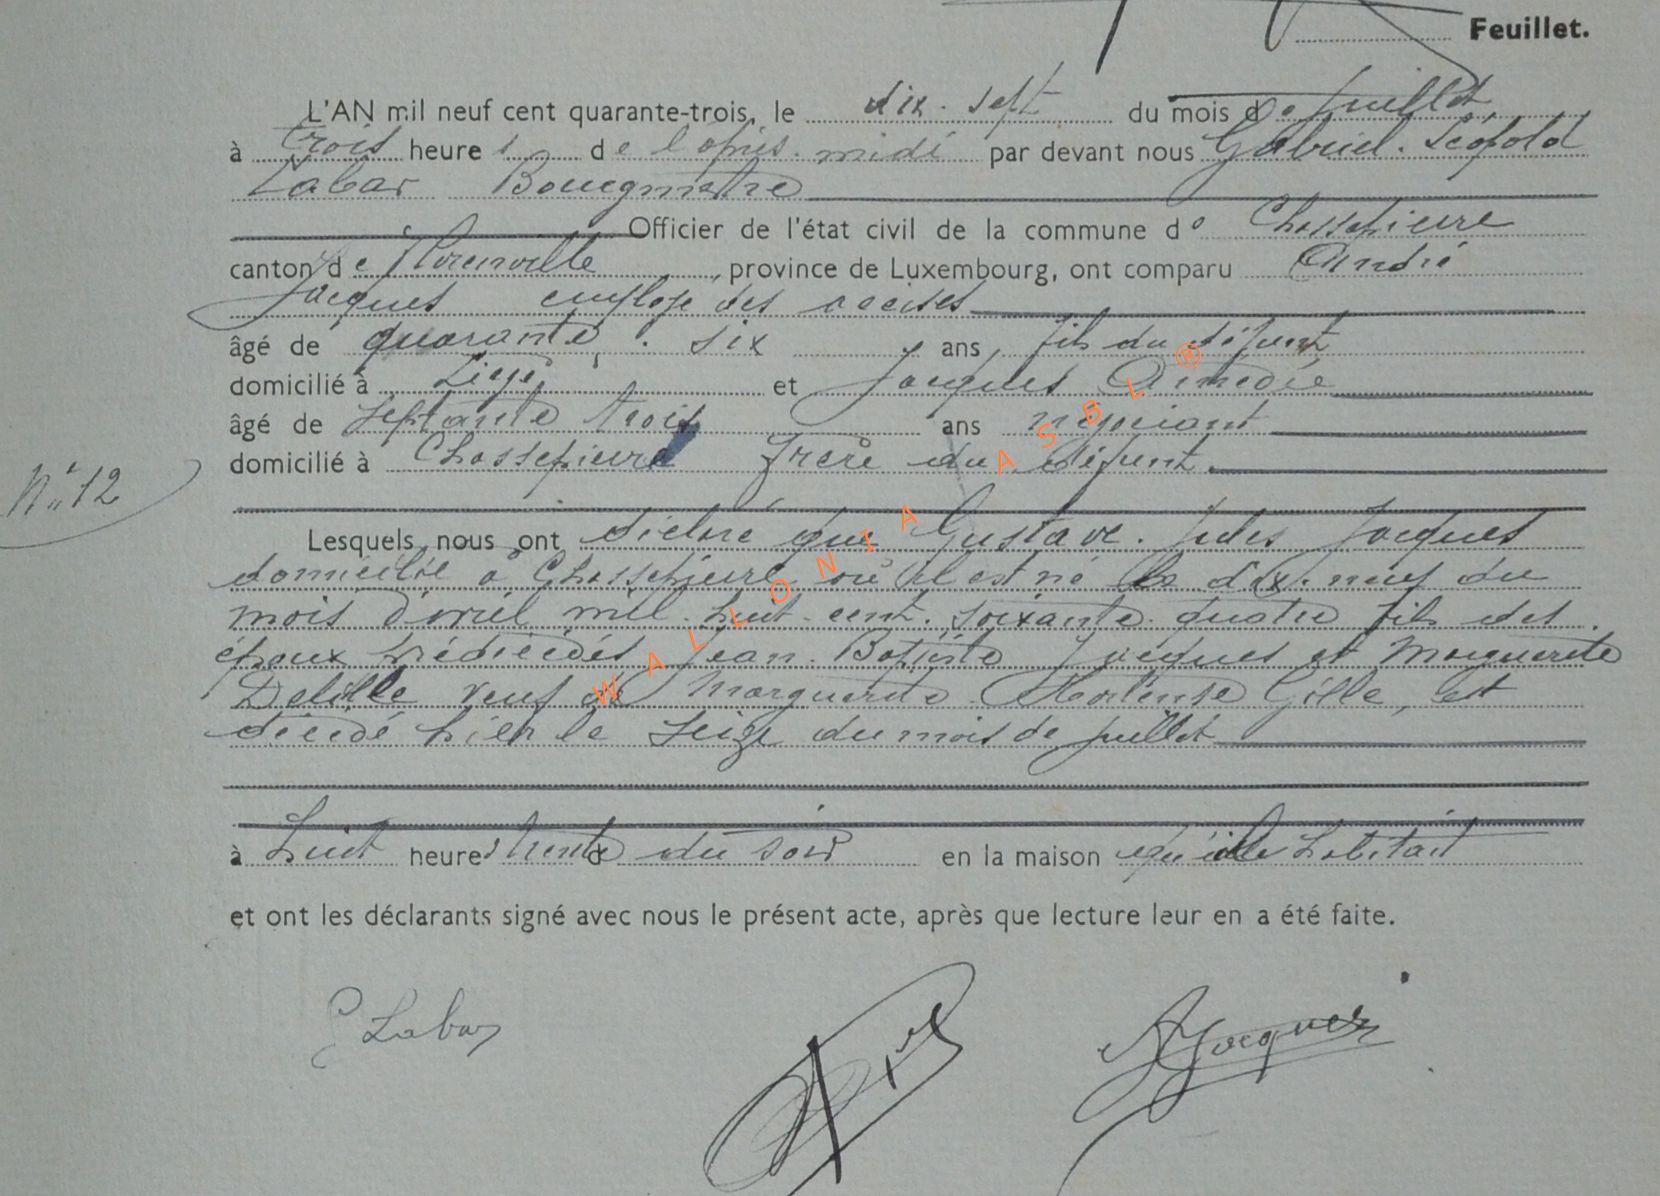 Feuillet.
L'AN mil neuf cent quarante-trois, le dix-sept du mois de juillet
à trois heures de l'après-midi par devant nous Gabriel-Léopold
Labar Bourgmestre
Officier de l'état civil de la commune de Chassepierre
canton de Florenville, province de Luxembourg, ont comparu André
Jacques employé des accises
âgé de quarante-six ans, fils du défunt
domicilié à Liège et Jacques Amédée
âgé de septante trois ans négociant
domicilié à Chassepierre frère du défunt.
N° 12
Lesquels nous ont déclaré que Gustave-Jules Jacques
domicilié à Chassepierre où il est né le dix-neuf du
mois d'avril mil-huit-cent-soixante-quatre fils des
époux prédécédés Jean-Baptiste Jacques et Marguerite
Delille veuf de Marguerite-Hortense Gille, est
décédé hier le seize du mois de juillet
à huit heures trente du soir en la maison qu'il habitait
et ont les déclarants signé avec nous le présent acte, après que lecture leur en a été faite.
G Labar
AJacques
WALLONIA ASBL ®